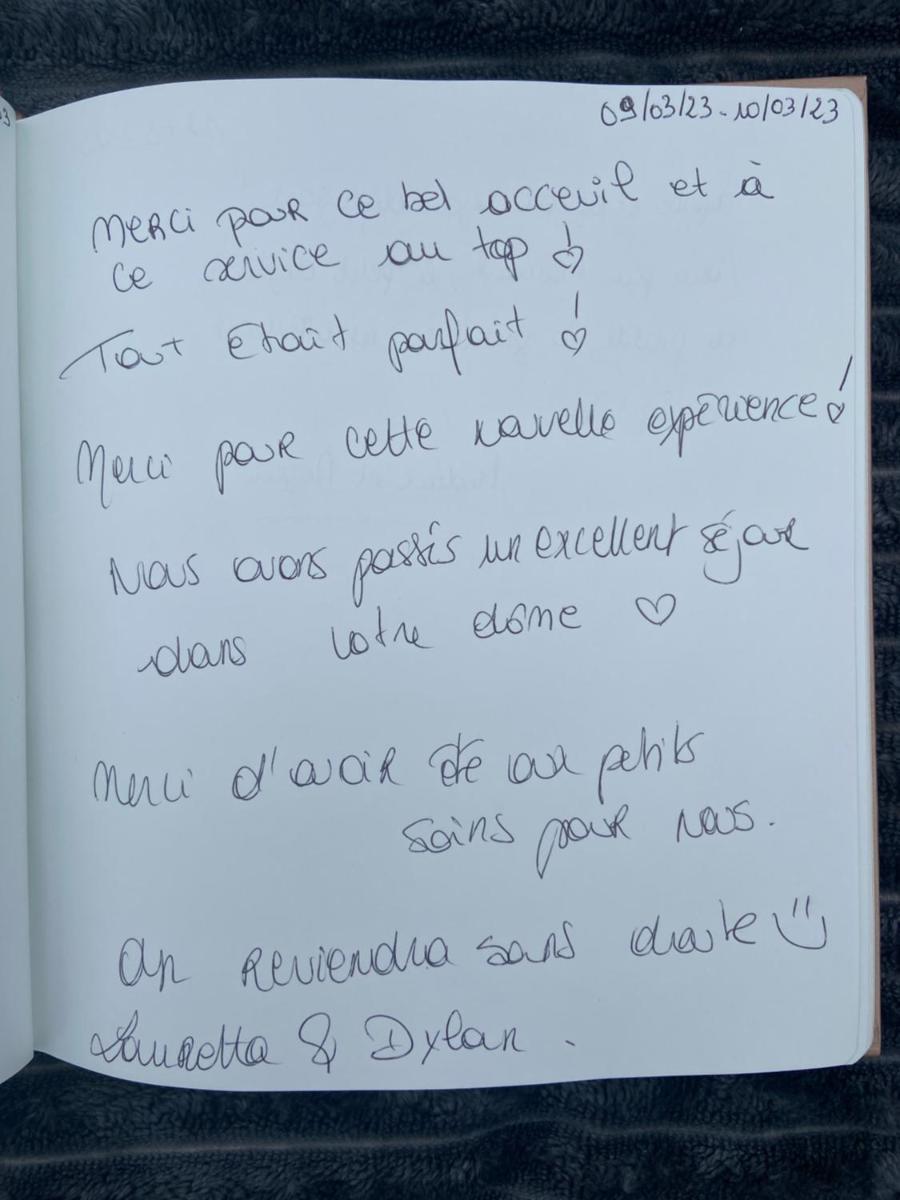 09/03/23 - 10/03/23
Merci pour ce bel acceuil et à
ce service au top !
Tout était parfait !
Merci pour cette nouvelle expérience !
Nous avons passés un excellent séjour
dans votre dôme ♡
Merci d'avoir été aux petits
soins pour nous.
On reviendra sans doute
Lauretta & Dylan.